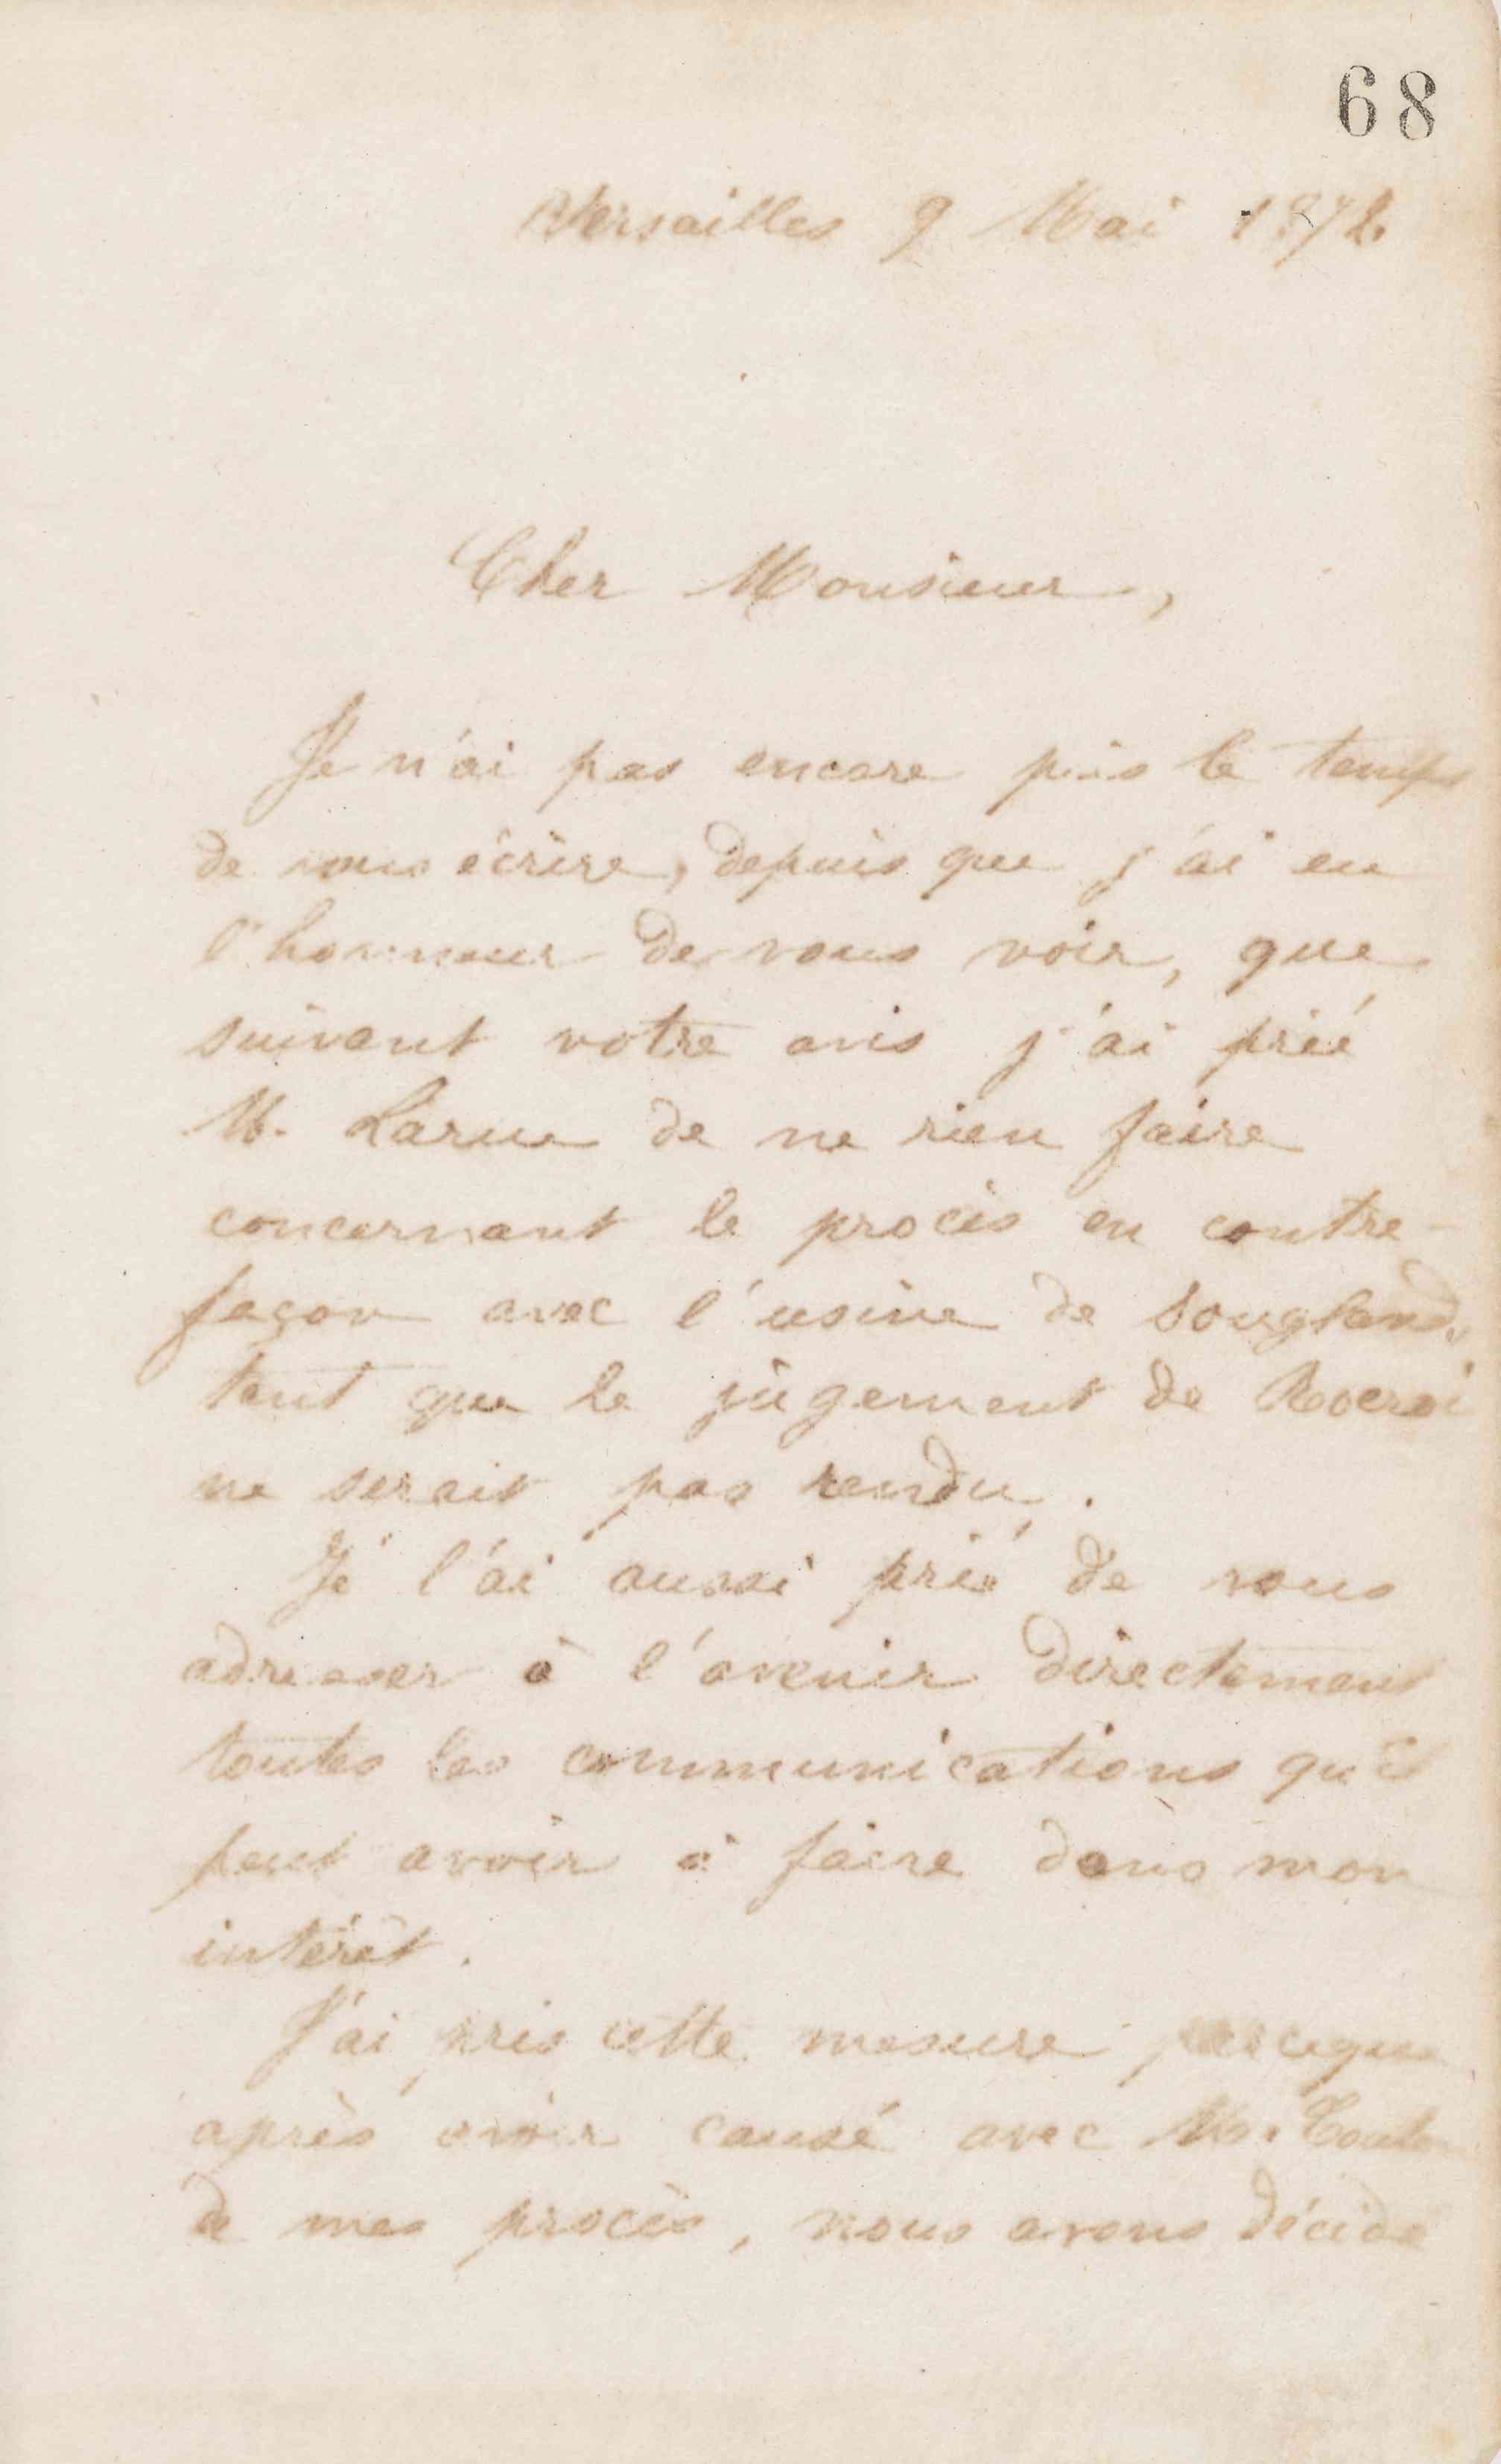 68
Versailles 9 Mai 1872
Cher Monsieur,
Je n'ai pas encore pris le temps
de vous écrire, depuis que j'ai eu
l'honneur de vous voir, que
suivant votre avis j'ai prié
M. Larue de ne rien faire
concernant le procès en contre-
façon avec l'usine de Sougland,
tant que le jugement de Rocroi
ne serait pas rendu.
Je l'ai aussi prié de vous
adresser à l'avenir directement
toutes les communications qu'il
peut avoir à faire dans mon
intérêt.
J'ai pris cette mesure parceque
après avoir causé avec M.
de mes procès, nous avons décidé